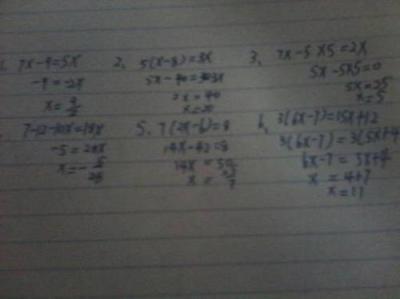 1. 7x-9=5x
-9=-2x
x=9/2
2. 5(x-8)=3x
5x-40=3x
2x=40
x=20
3. 7x-5×5=2x
5x-5×5=0
5x=25
x=5
7-12-10x=18x
-5=28x
x=-5/28
5. 7(2x-6)=8
14x-42=8
14x=50
6. 3(6x-7)=15x+12
3(6x-7)=3(5x+4)
6x-7=5x+4
x=4+7
x=11